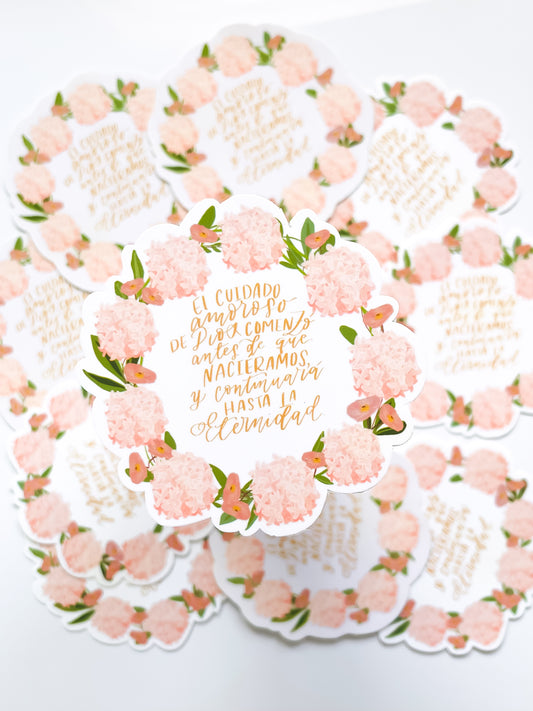 El CUIDADO
amoroso
DE Dios COMENZÓ
antes de que
NACIERAMOS,
y continuará
HASTA LA
Eternidad